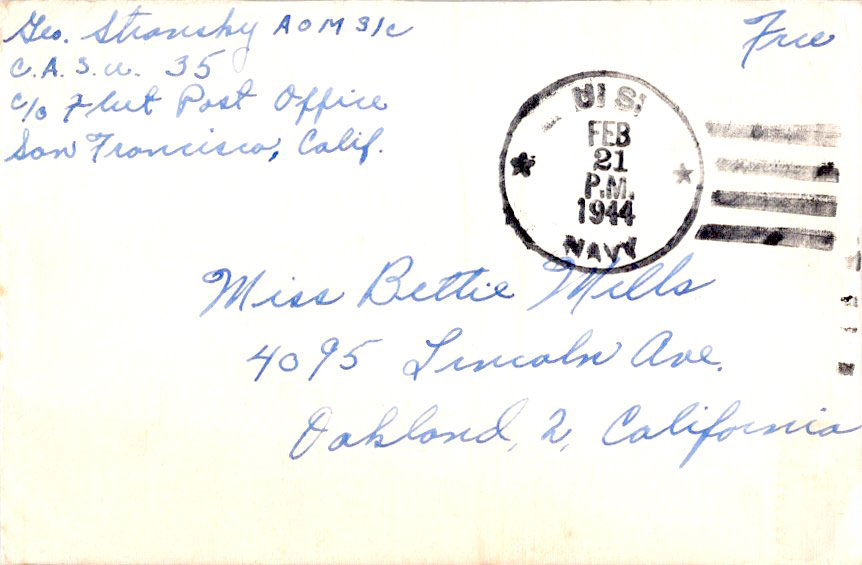 Geo. Stransky AOM 3/c
C.A.S.U. 35
c/o Fleet Post Office
San Francisco, Calif.
Free
U.S.
FEB
21
P.M.
1944
NAVY
Miss Bettie Mills
4095 Lincoln Ave.
Oakland, 2, California